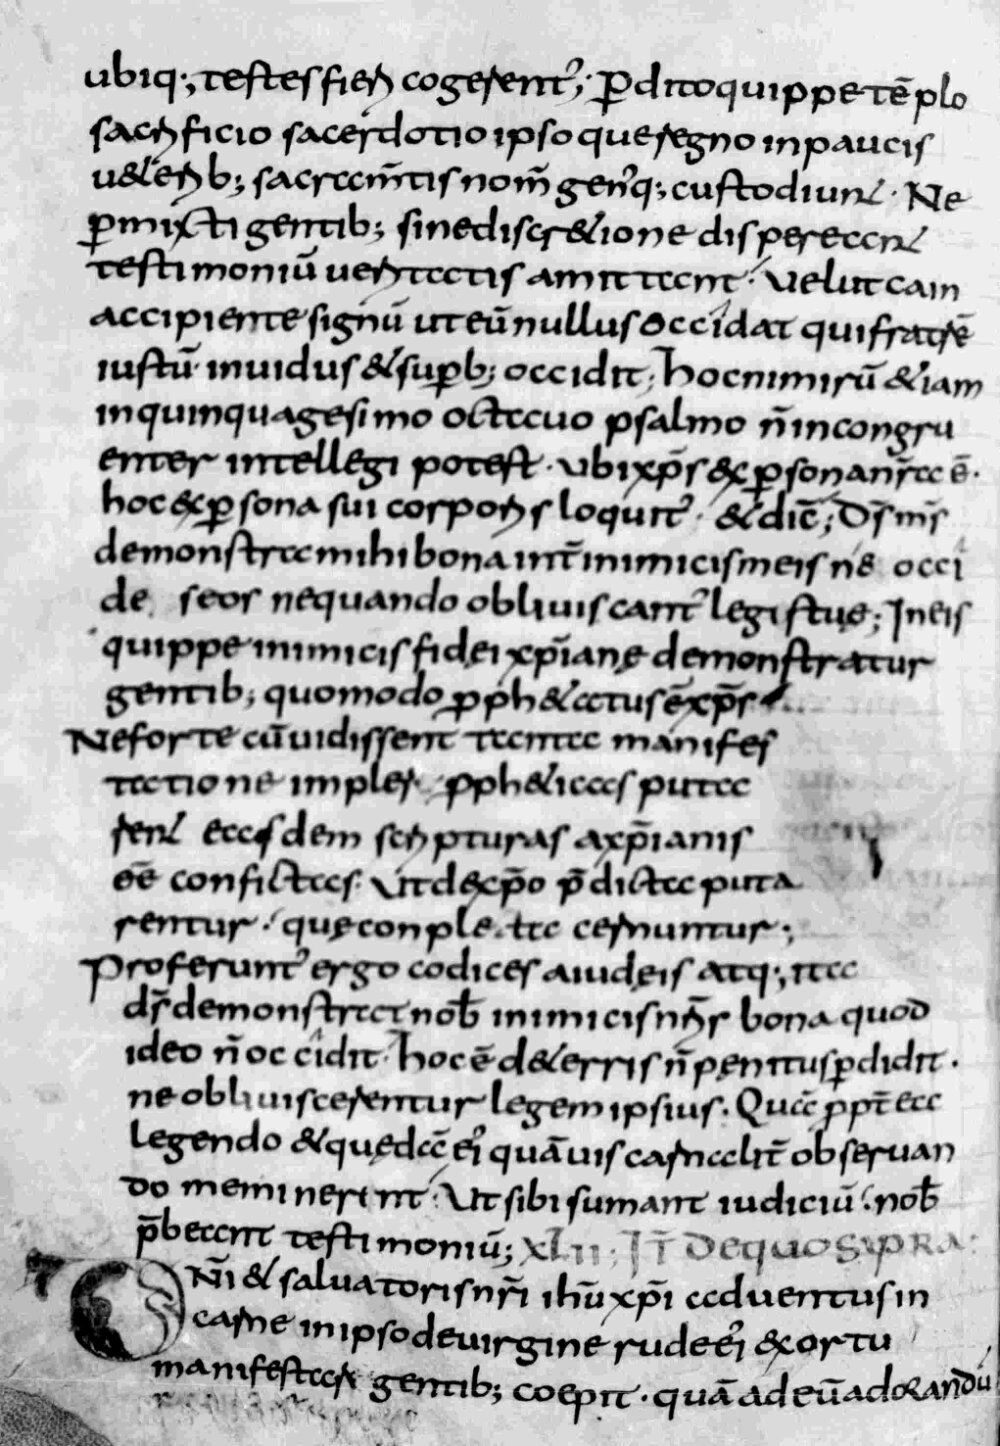 ubiq; testes fieri cogerent᷑; ꝑdito quippe tēplo
sacrificio sacerdotio ipsoque regno inpaucis
u&erib; sacram̄tis nom̄ gen᷑q; custodiunt. Ne
ꝑmixti gentib; sine discr&ione dispereant
testimoniū ueritatis amittant. Velut cain
accipiente signū ut eū nullus occidat qui fratrē
iustū inuidus & suꝑb; occidit; hoc nimirū &iam
in quinquagesimo octauo psalmo n̄ incongru
enter intellegi potest. ubi xp̄s ex ꝑsona nr̄a ē.
hoc ex ꝑsona sui corporis loquit᷑. & dic̄; D̄s m̄s
demonstra mihi bona int̄ inimicis meis ne occi
de seos nequando obliuiscant᷑ legis tuę; In eis
quippe inimicis fidęi xp̄ianę demonstratur
gentib; quomodo ꝓph&atus ē xp̄s
Ne forte cū uidissent tanta manifes
tatione impleri ꝓph&iaas puta
rent easdem scripturas a xp̄ianis
eē confictas. Ut de xp̄o p̄dicta puta
rentur. quę conpleta cernuntur;
Proferunt᷑ ergo codices a iudęis atq; ita
d̄s demonstrat nob̄ inimicis nr̄is bona quod
ideo n̄ occidit. hoc ē de terris n̄ pęnitus ꝑdidit.
ne obliuiscerentur legem ipsius. Quā ꝓpt̄ea
legendo & quędā ei᷑ quāuis carnalit̄ obseruan
do meminerint. Ut sibi sumant iudiciū. nob̄
p̄beant testimoniū; XLII; IT̄ DE QUO SUPRA.
Dn̄i & saluatoris nr̄i ihū xp̄i aduentus in
carne in ipso de uirgine rude ei᷑ exortu
manifestari gentib; coepit. quā ad eū adorandū